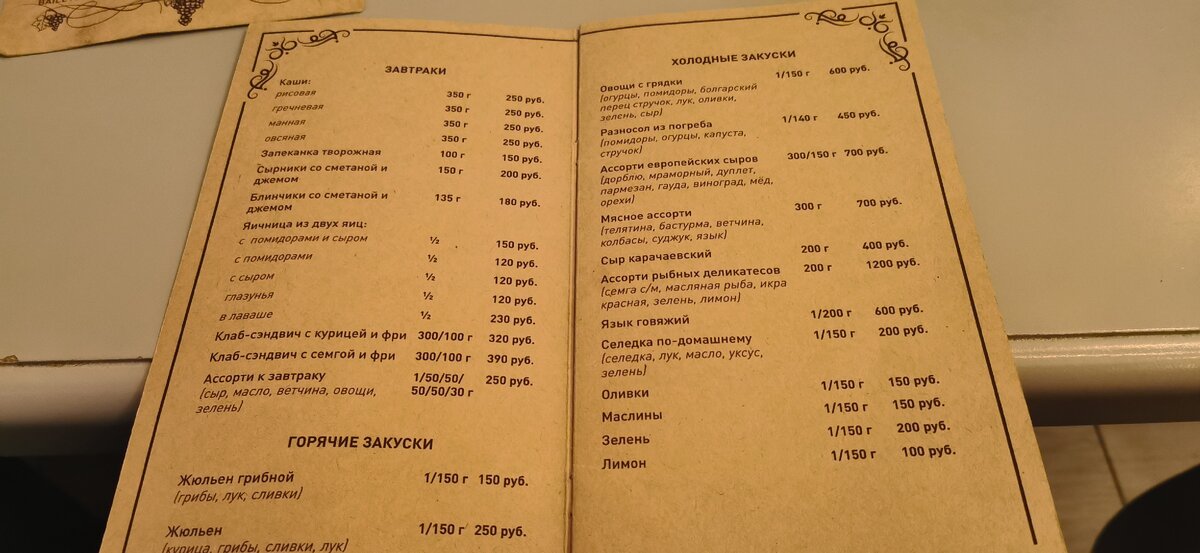 ЗАВТРАКИ
Каши:
рисовая 350 г 250 руб.
гречневая 350 г 250 руб.
манная 350 г 250 руб.
овсяная 350 г 250 руб.
Запеканка творожная 100 г 150 руб.
Сырники со сметаной и 150 г 200 руб.
джемом
Блинчики со сметаной и 135 г 180 руб.
джемом
Яичница из двух яиц:
с помидорами и сыром ½ 150 руб.
с помидорами ½ 120 руб.
с сыром ½ 120 руб.
глазунья ½ 120 руб.
в лаваше ½ 230 руб.
Клаб-сэндвич с курицей и фри 300/100 г 320 руб.
Клаб-сэндвич с семгой и фри 300/100 г 390 руб.
Ассорти к завтраку 1/50/50/ 250 руб.
(сыр, масло, ветчина, овощи, 50/50/30 г
зелень)
ГОРЯЧИЕ ЗАКУСКИ
Жюльен грибной 1/150 г 150 руб.
(грибы, лук, сливки)
Жюльен 1/150 г 250 руб.
(курица, грибы, сливки, лук)
ХОЛОДНЫЕ ЗАКУСКИ
Овощи с грядки 1/150 г 600 руб.
(огурцы, помидоры, болгарский
перец стручок, лук, оливки,
зелень, сыр)
Разносол из погреба 1/140 г 450 руб.
(помидоры, огурцы, капуста,
стручок)
Ассорти европейских сыров 300/150 г 700 руб.
(дорблю, мраморный, дуплет,
пармезан, гауда, виноград, мёд,
орехи)
Мясное ассорти 300 г 700 руб.
(телятина, бастурма, ветчина,
колбасы, суджук, язык)
Сыр карачаевский 200 г 400 руб.
Ассорти рыбных деликатесов 200 г 1200 руб.
(семга с/м, масляная рыба, икра
красная, зелень, лимон)
Язык говяжий 1/200 г 600 руб.
Селедка по-домашнему 1/150 г 200 руб.
(селедка, лук, масло, уксус,
зелень)
Оливки 1/150 г 150 руб.
Маслины 1/150 г 150 руб.
Зелень 1/150 г 200 руб.
Лимон 1/150 г 100 руб.